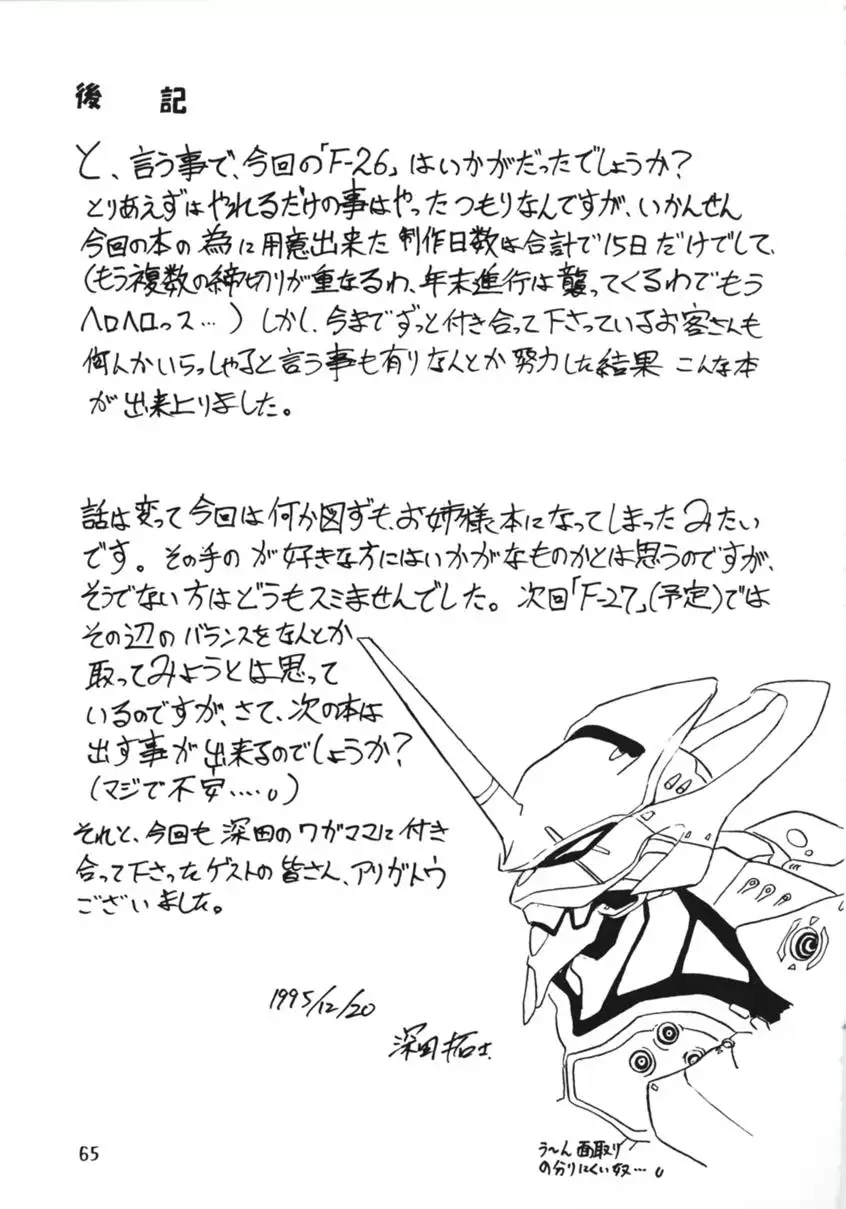 後記
と、言う事で、今回の「F-26」はいかがだったでしょうか?
とりあえずはやれるだけの事はやったつもりなんですが、いかんせん
今回の本の為に用意出来た制作日数は合計で15日だけでして、
(もう複数の締切りが重なるわ、年末進行は襲ってくるわでもう
ヘロヘロっス…)しかし、今までずっと付き合って下さっているお客さんも
何んかいらっしゃると言う事も有りなんとか努力した結果こんな本
が出来上りました。
話は変って今回は何か図ずも、お姉様本になってしまったみたい
です。その手のが好きな方にはいかがなものかとは思うのですが、
そうでない方はどうもスミませんでした。次回「F-27」(予定)では
その辺のバランスをなんとか
取ってみようとは思って
いるのですが、さて、次の本は
出す事が出来るのでしょうか?
(マジで不安……。)
それと、今回も深田のワガママに付き
合って下さったゲストの皆さん、アリガトウ
ございました。
1995/12/20
深田拓士
う〜ん面取り
の分りにくい奴…。
65